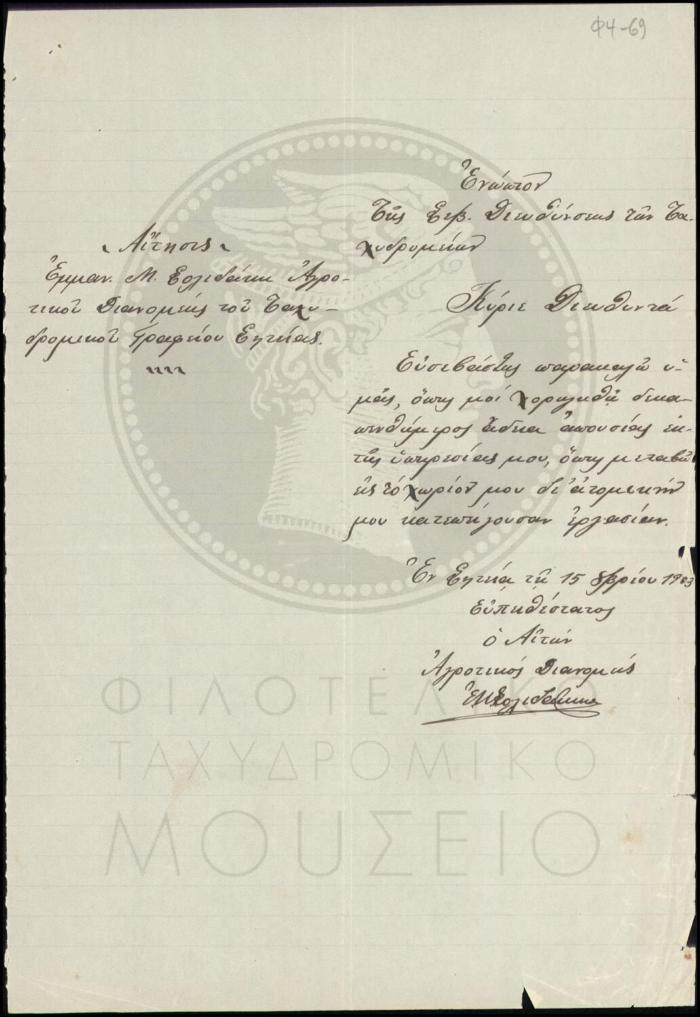 Φ4-69
Ἐνώπιον
Τῆς Σεβ. Διευθύνσεως τῶν Τα-
χυδρομείων
Αἴτησις
Ἐμμαν. Μ. Σολιδάκη Ἀγρο-
τικοῦ Διανομέως τοῦ Ταχυ-
δρομικοῦ Γραφείου Σητείας.
Κύριε Διευθυντά
Εὐσεβάστως παρακαλῶ ὑ-
μᾶς, ὅπως μοὶ χορηγηθῇ δεκα-
πενθήμερος ἄδεια ἀπουσίας ἐκ
τῆς ὑπηρεσίας μου, ὅπως μεταβῶ
εἰς τὸ χωρίον μου δι' ἀτομικήν
μου κατεπείγουσαν ἐργασίαν.
Ἐν Σητείᾳ τῇ 15 8βρίου 1903
Εὐπειθέστατος
ὁ Αἰτῶν
Ἀγροτικός Διανομεύς
ΕΜΣολιδάκης
ΦΙΛΟΤΕΛΙΚΟ
ΤΑΧΥΔΡΟΜΙΚΟ
ΜΟΥΣΕΙΟ